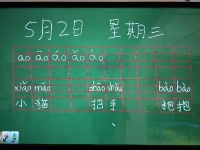 5月2日 星期三
ao āo áo ǎo ào
xiǎo māo zhāo shǒu bào bào
小 猫 招 手 抱 抱